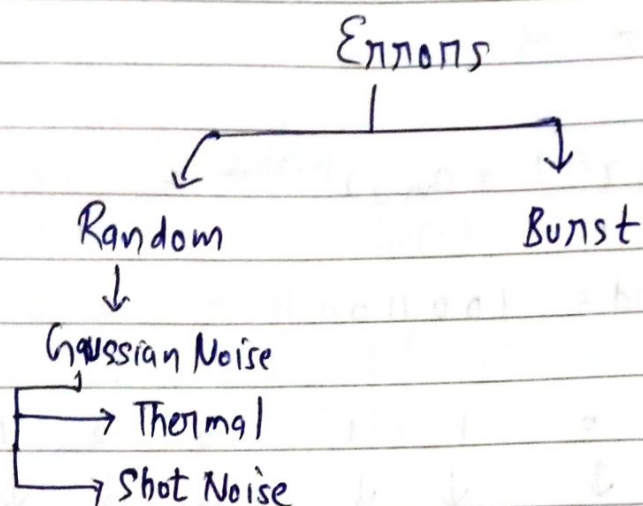 Errors
Random Burst
Gaussian Noise
Thermal
Shot Noise